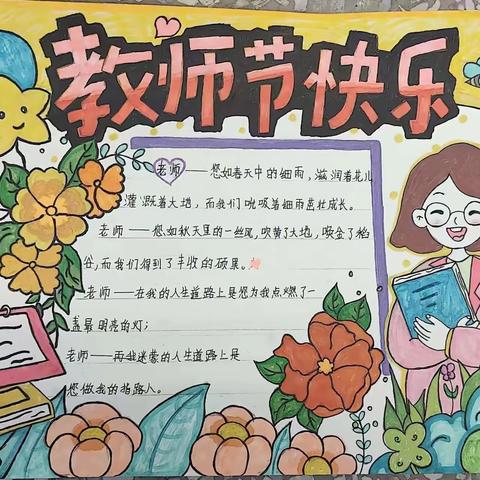 教师节快乐
老师——您如春天中的细雨，滋润着花儿
灌溉着大地，而我们吮吸着细雨茁壮成长。
老师——您如秋天里的一丝风，吹黄了大地，吹金了稻
谷，而我们得到了丰收的硕果。
老师——在我的人生道路上是您为我点燃了一
盏最明亮的灯；
老师——再我迷蒙的人生道路上是
您做我的指路人。